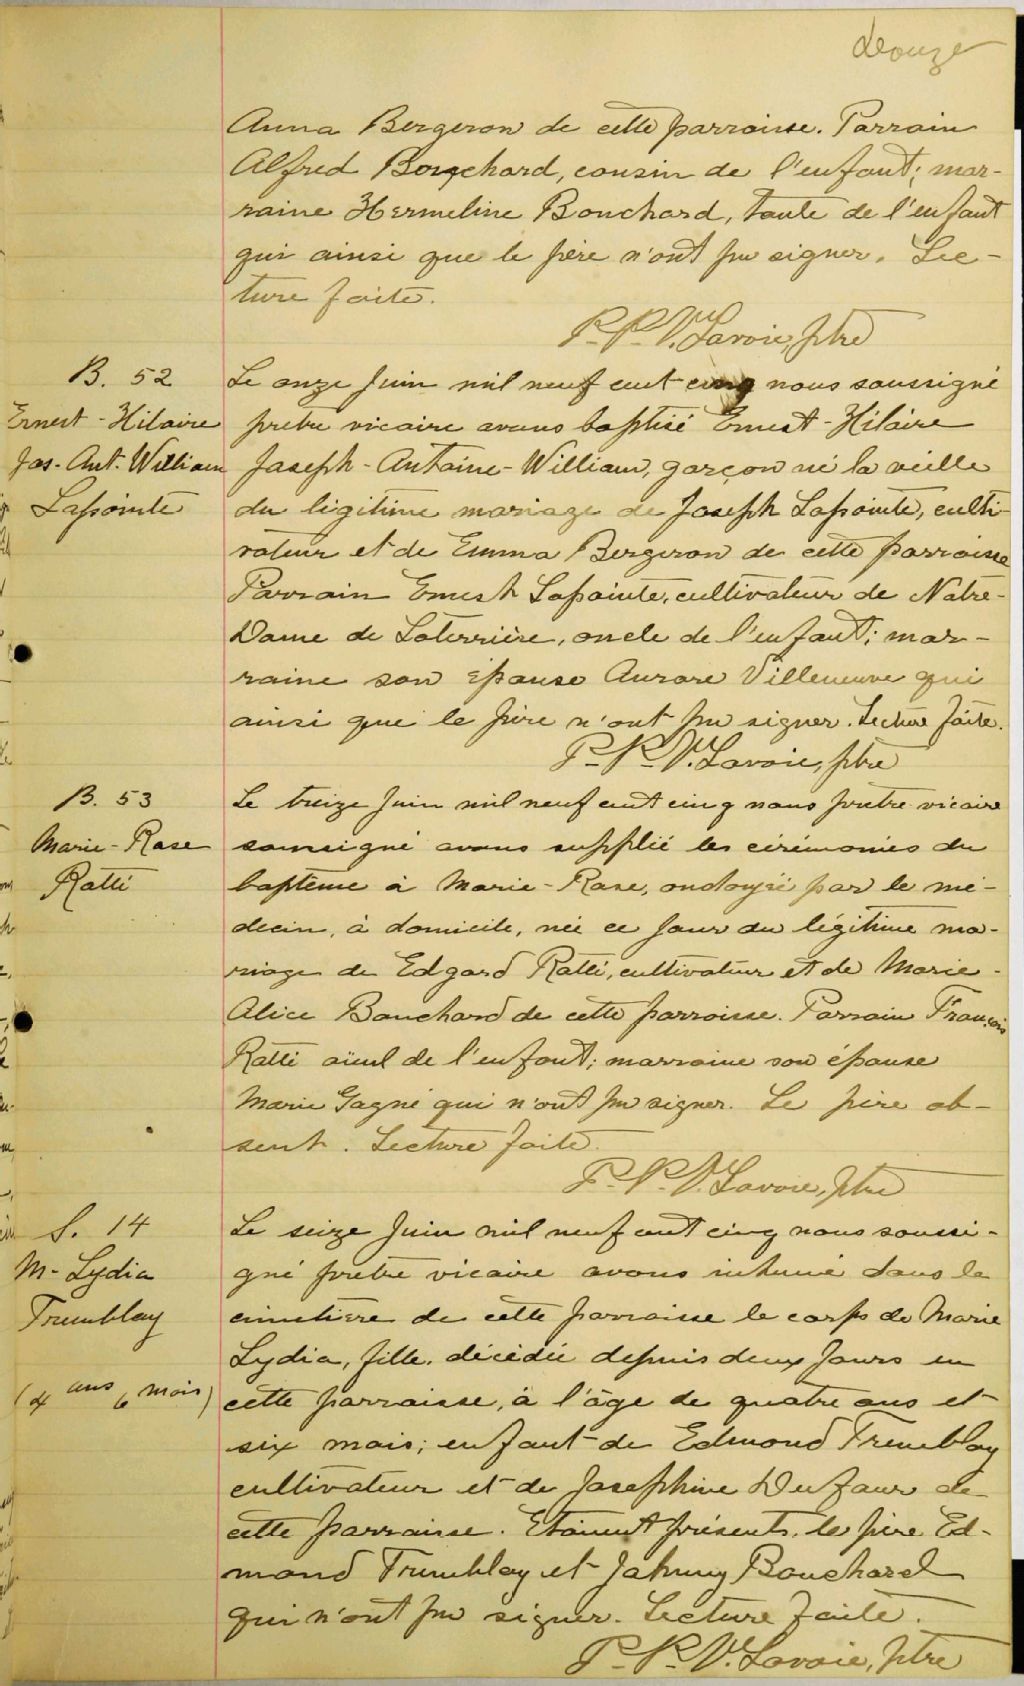 douze
Anna Bergeron de cette parroisse. Parrain
Alfred Bouchard, cousin de l'enfant; mar-
raine Hermeline Bouchard, tante de l'enfant
qui ainsi que le père n'ont pu signer. Lec-
ture faite.
P. P. V. Lavoie, ptre
B. 52
Ernest-Hilaire
Jos. Ant. William
Lapointe
Le onze Juin mil neuf cent cinq nous soussigné
pretre vicaire avons baptisé Ernest-Hilaire
Joseph-Antoine-William, garçon né la veille
du légitime mariage de Joseph Lapointe, culti-
vateur et de Emma Bergeron de cette parroisse
Parrain Ernest Lapointe, cultivateur de Notre-
Dame de Laterrière, oncle de l'enfant; mar-
raine son épouse Aurore Villeneuve qui
ainsi que le père n'ont pu signer. Lecture faite.
P. P. V. Lavoie, ptre
B. 53
Marie-Rose
Ratté
Le treize Juin mil neuf cent cinq nous pretre vicaire
soussigné avons supplié les cérémonies du
baptême à Marie-Rose, ondoyée par le mé-
decin, à domicile, née ce jour du légitime ma-
riage de Edgard Ratté, cultivateur et de Marie-
Alice Bouchard de cette parroisse. Parrain François
Ratté aïeul de l'enfant; marraine son épouse
Marie Gagné qui n'ont pu signer. Le père ab-
sent. Lecture faite.
P. P. V. Lavoie, ptre
S. 14
M-Lydia
Tremblay
(4 ans 6 mois)
Le seize Juin mil neuf cent cinq nous soussi-
gné pretre vicaire avons inhumé dans le
cimetière de cette parroisse le corps de Marie
Lydia, fille, décédée depuis deux jours en
cette parroisse, à l'âge de quatre ans et
six mois; enfant de Edmond Tremblay
cultivateur et de Josephine Dufour de
cette parroisse. Etaient présents, le père Ed-
mond Tremblay et Johnny Bouchard
qui n'ont pu signer. Lecture faite.
P. P. V. Lavoie, ptre